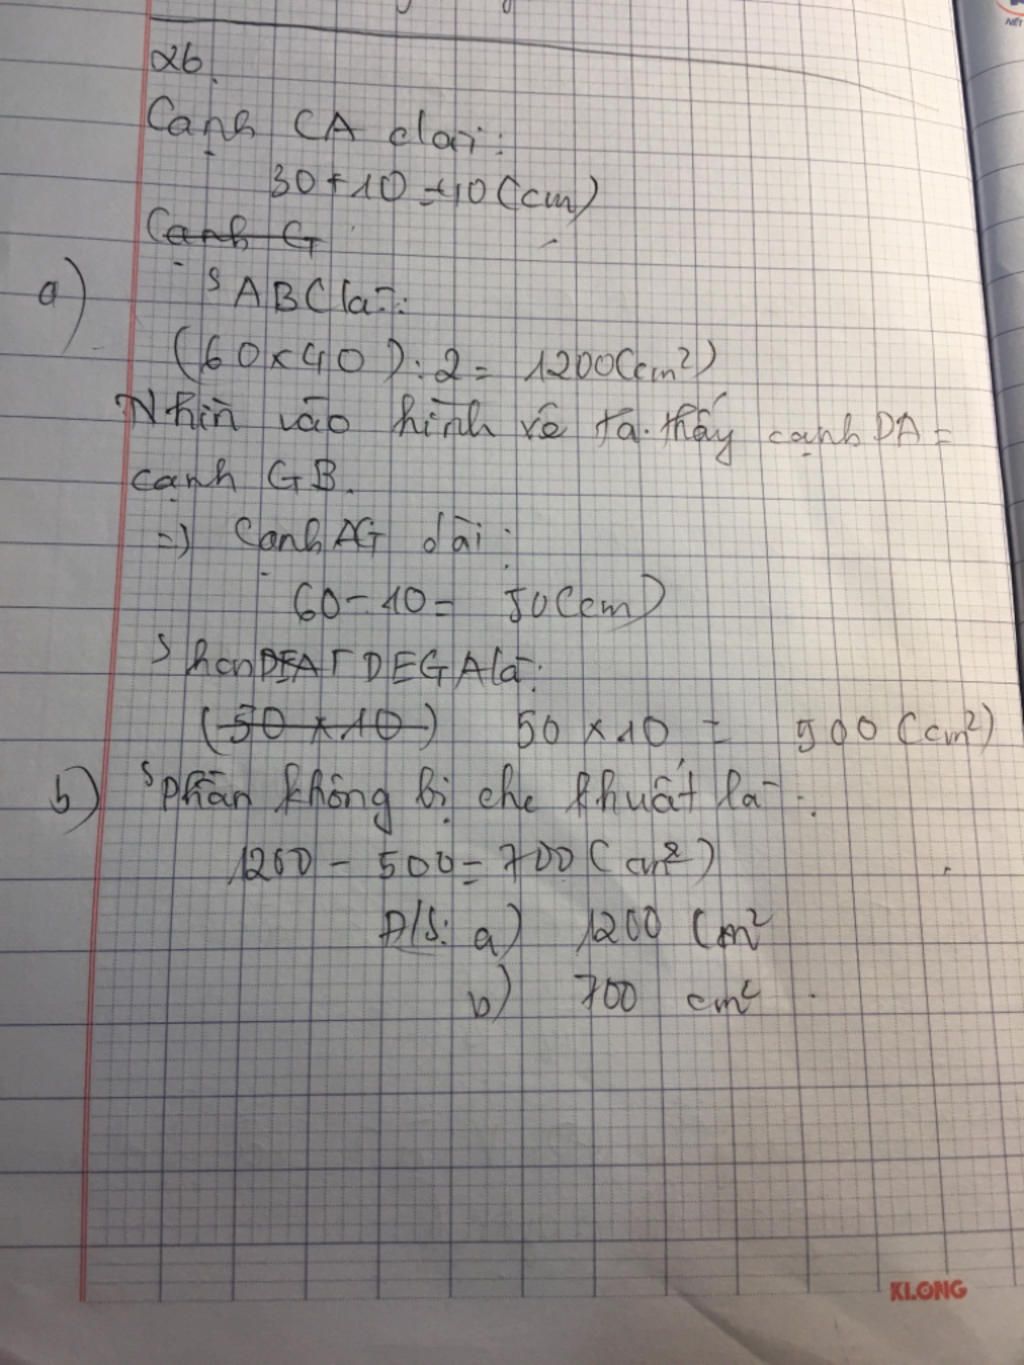 26.
Cạnh CA dài:
30 + 10 = 40 (cm)
Cạnh G
a) S ABC là:
(60 × 40) : 2 = 1200 (cm²)
Nhìn vào hình vẽ ta thấy cạnh DA =
cạnh GB.
=> Cạnh AG dài:
60 - 10 = 50 (cm)
S DEGA là:
(50 × 10) 50 × 10 = 500 (cm²)
b) S phần không bị che khuất là:
1200 - 500 = 700 (cm²)
Đ/S: a) 1200 cm²
b) 700 cm²
KLONG